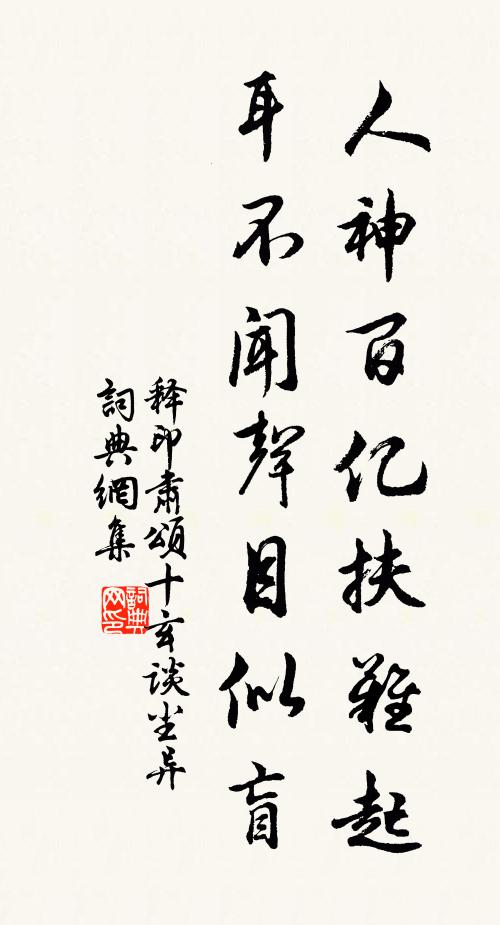 人神百亿扶難起
耳不闻聲目似盲
释印肃頌十玄谈尘异
詞典網集
詞典网印